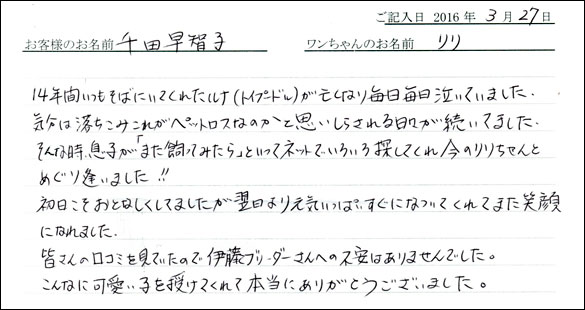 ご記入日 2016 年 3 月 27 日
お客様のお名前 千田早智子 ワンちゃんのお名前 リリ
14年間いつもそばにいてくれたルナ(トイプードル)が亡くなり毎日毎日泣いていました.
気分は落ちこみこれがペットロスなのかと思いしらされる日々が続いてました.
そんな時、息子が「また飼ってみたら」といってネットでいろいろ探してくれ今のリリちゃんと
めぐり逢いました!!
初日こそおとなしくしてましたが翌日より元気いっぱい、すぐになついてくれてまた笑顔
になれました.
皆さんの口コミを見ていたので伊藤ブリーダーさんへの不安はありませんでした。
こんなに可愛い子を授けてくれて本当にありがとうございました。